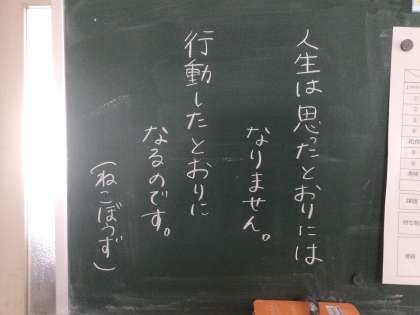 人生は思ったとおりには
なりません。
行動したとおりに
なるのです。
(ねこぼうず)